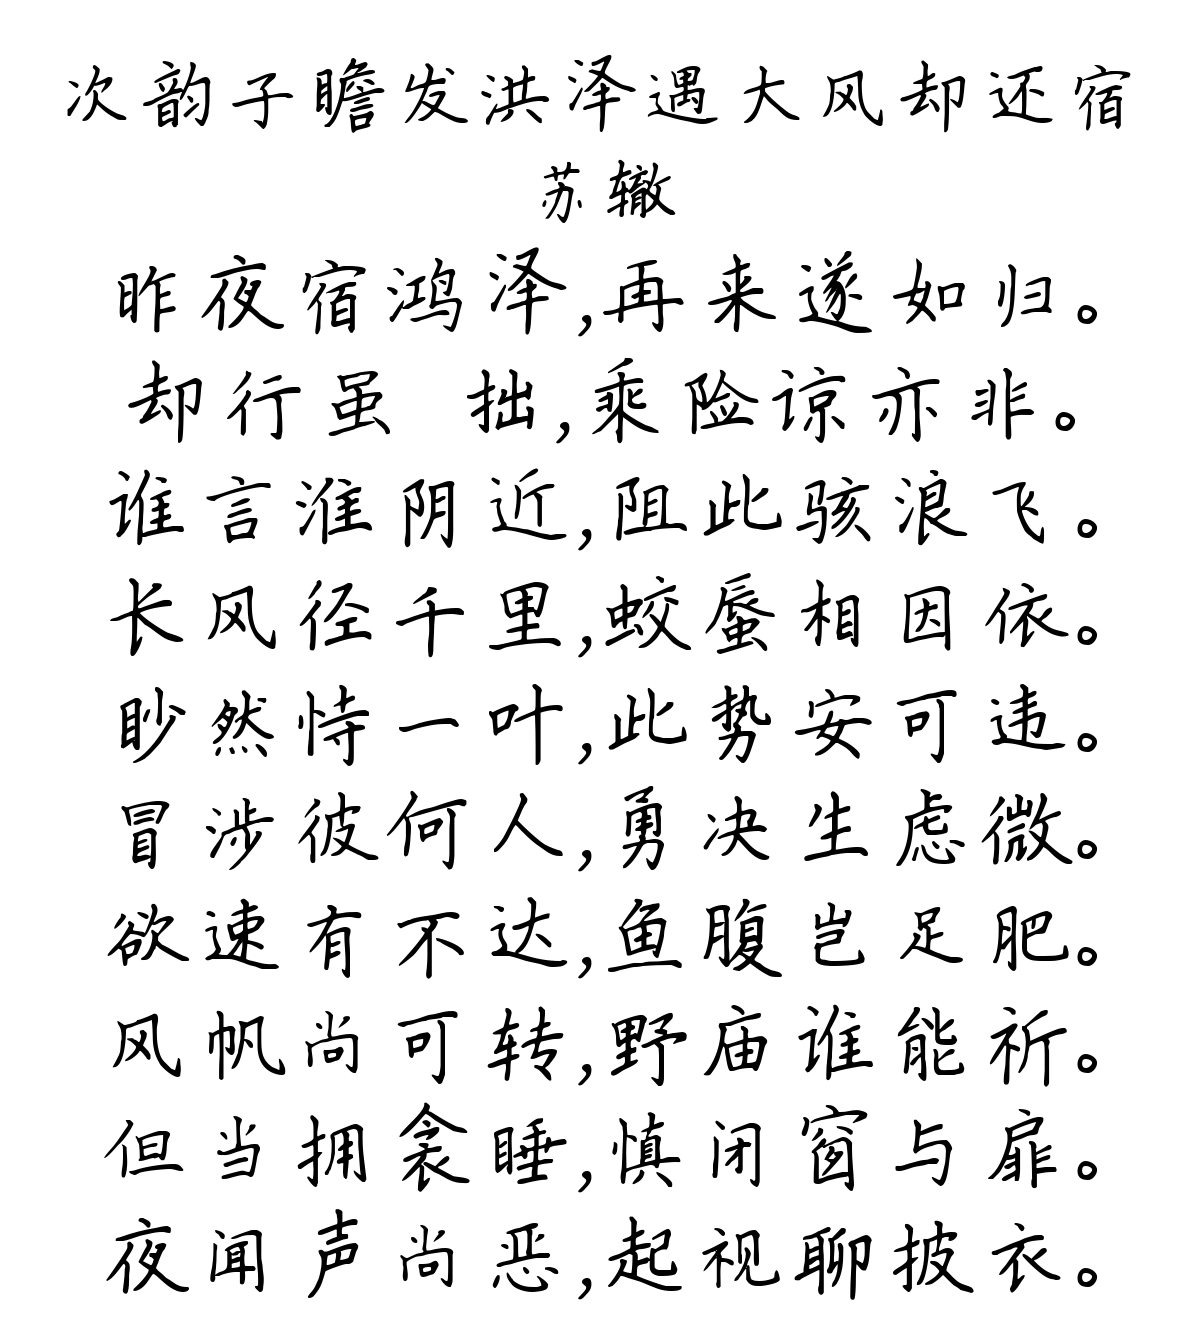 次韵子瞻发洪泽遇大风却还宿
苏辙
昨夜宿鸿泽,再来遂如归。
却行虽 拙,乘险谅亦非。
谁言淮阴近,阻此骇浪飞。
长风径千里,蛟蜃相因依。
眇然恃一叶,此势安可违。
冒涉彼何人,勇决生虑微。
欲速有不达,鱼腹岂足肥。
风帆尚可转,野庙谁能祈。
但当拥衾睡,慎闭窗与扉。
夜闻声尚恶,起视聊披衣。